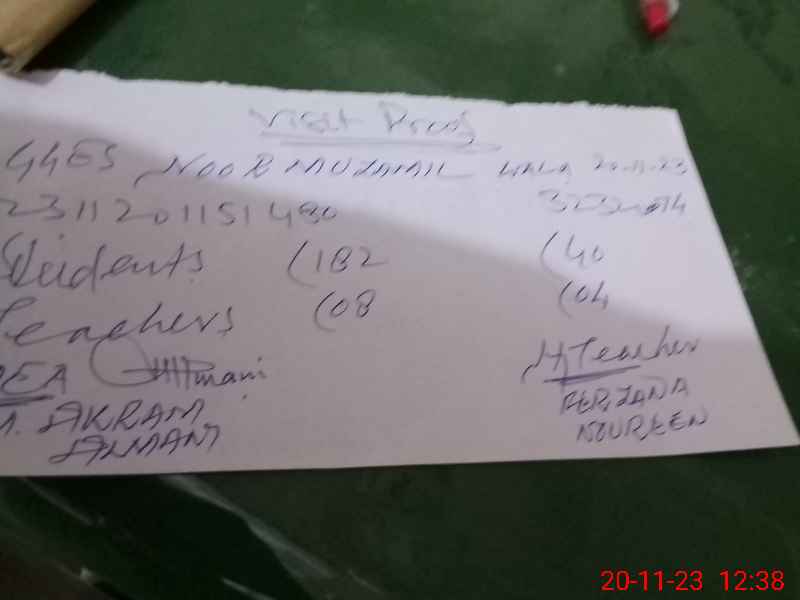 Visit Proof
GGES NOOR MUZAMIL WALA 20-11-23
2311201151480
Students (182 (40
Teachers (08 (04
H/Teacher
M. AKRAM FERZANA
NOUREEN
20-11-23 12:38